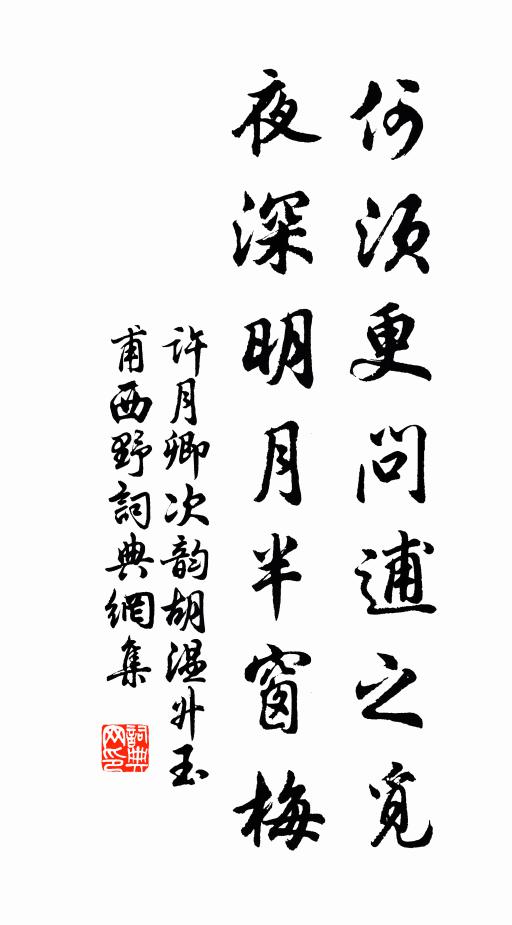 何須更問逋之覓
夜深明月半窗梅
許月卿次韵胡温升玉
甫西野詞典網集
詞典网印